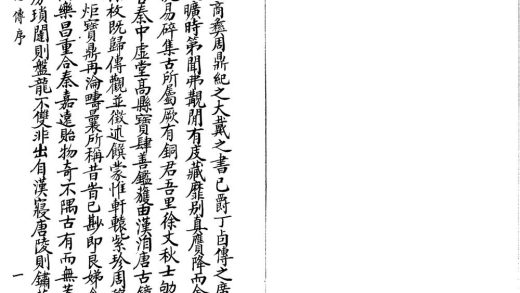 商彝周鼎紀之大戴之書已爵丁卣傳之廣
曠時第聞弗觀閒有庋藏靡別真贋降而金
易碎集古所屬厥有銅君吾里徐丈秋士劬
秦中虛堂高縣寶肆善鑑蒦由漢洎唐古鏡
枚既歸傳觀並徵述饌蒙惟軒轅紫珍周
炬寶鼎再淪疇曩所稱昔昔已尠即良娣
樂昌重合秦嘉遠貽物奇不隅古有而無
瑣闥則盤龍不雙非出自漢寢唐陵則鏽
傳序
一